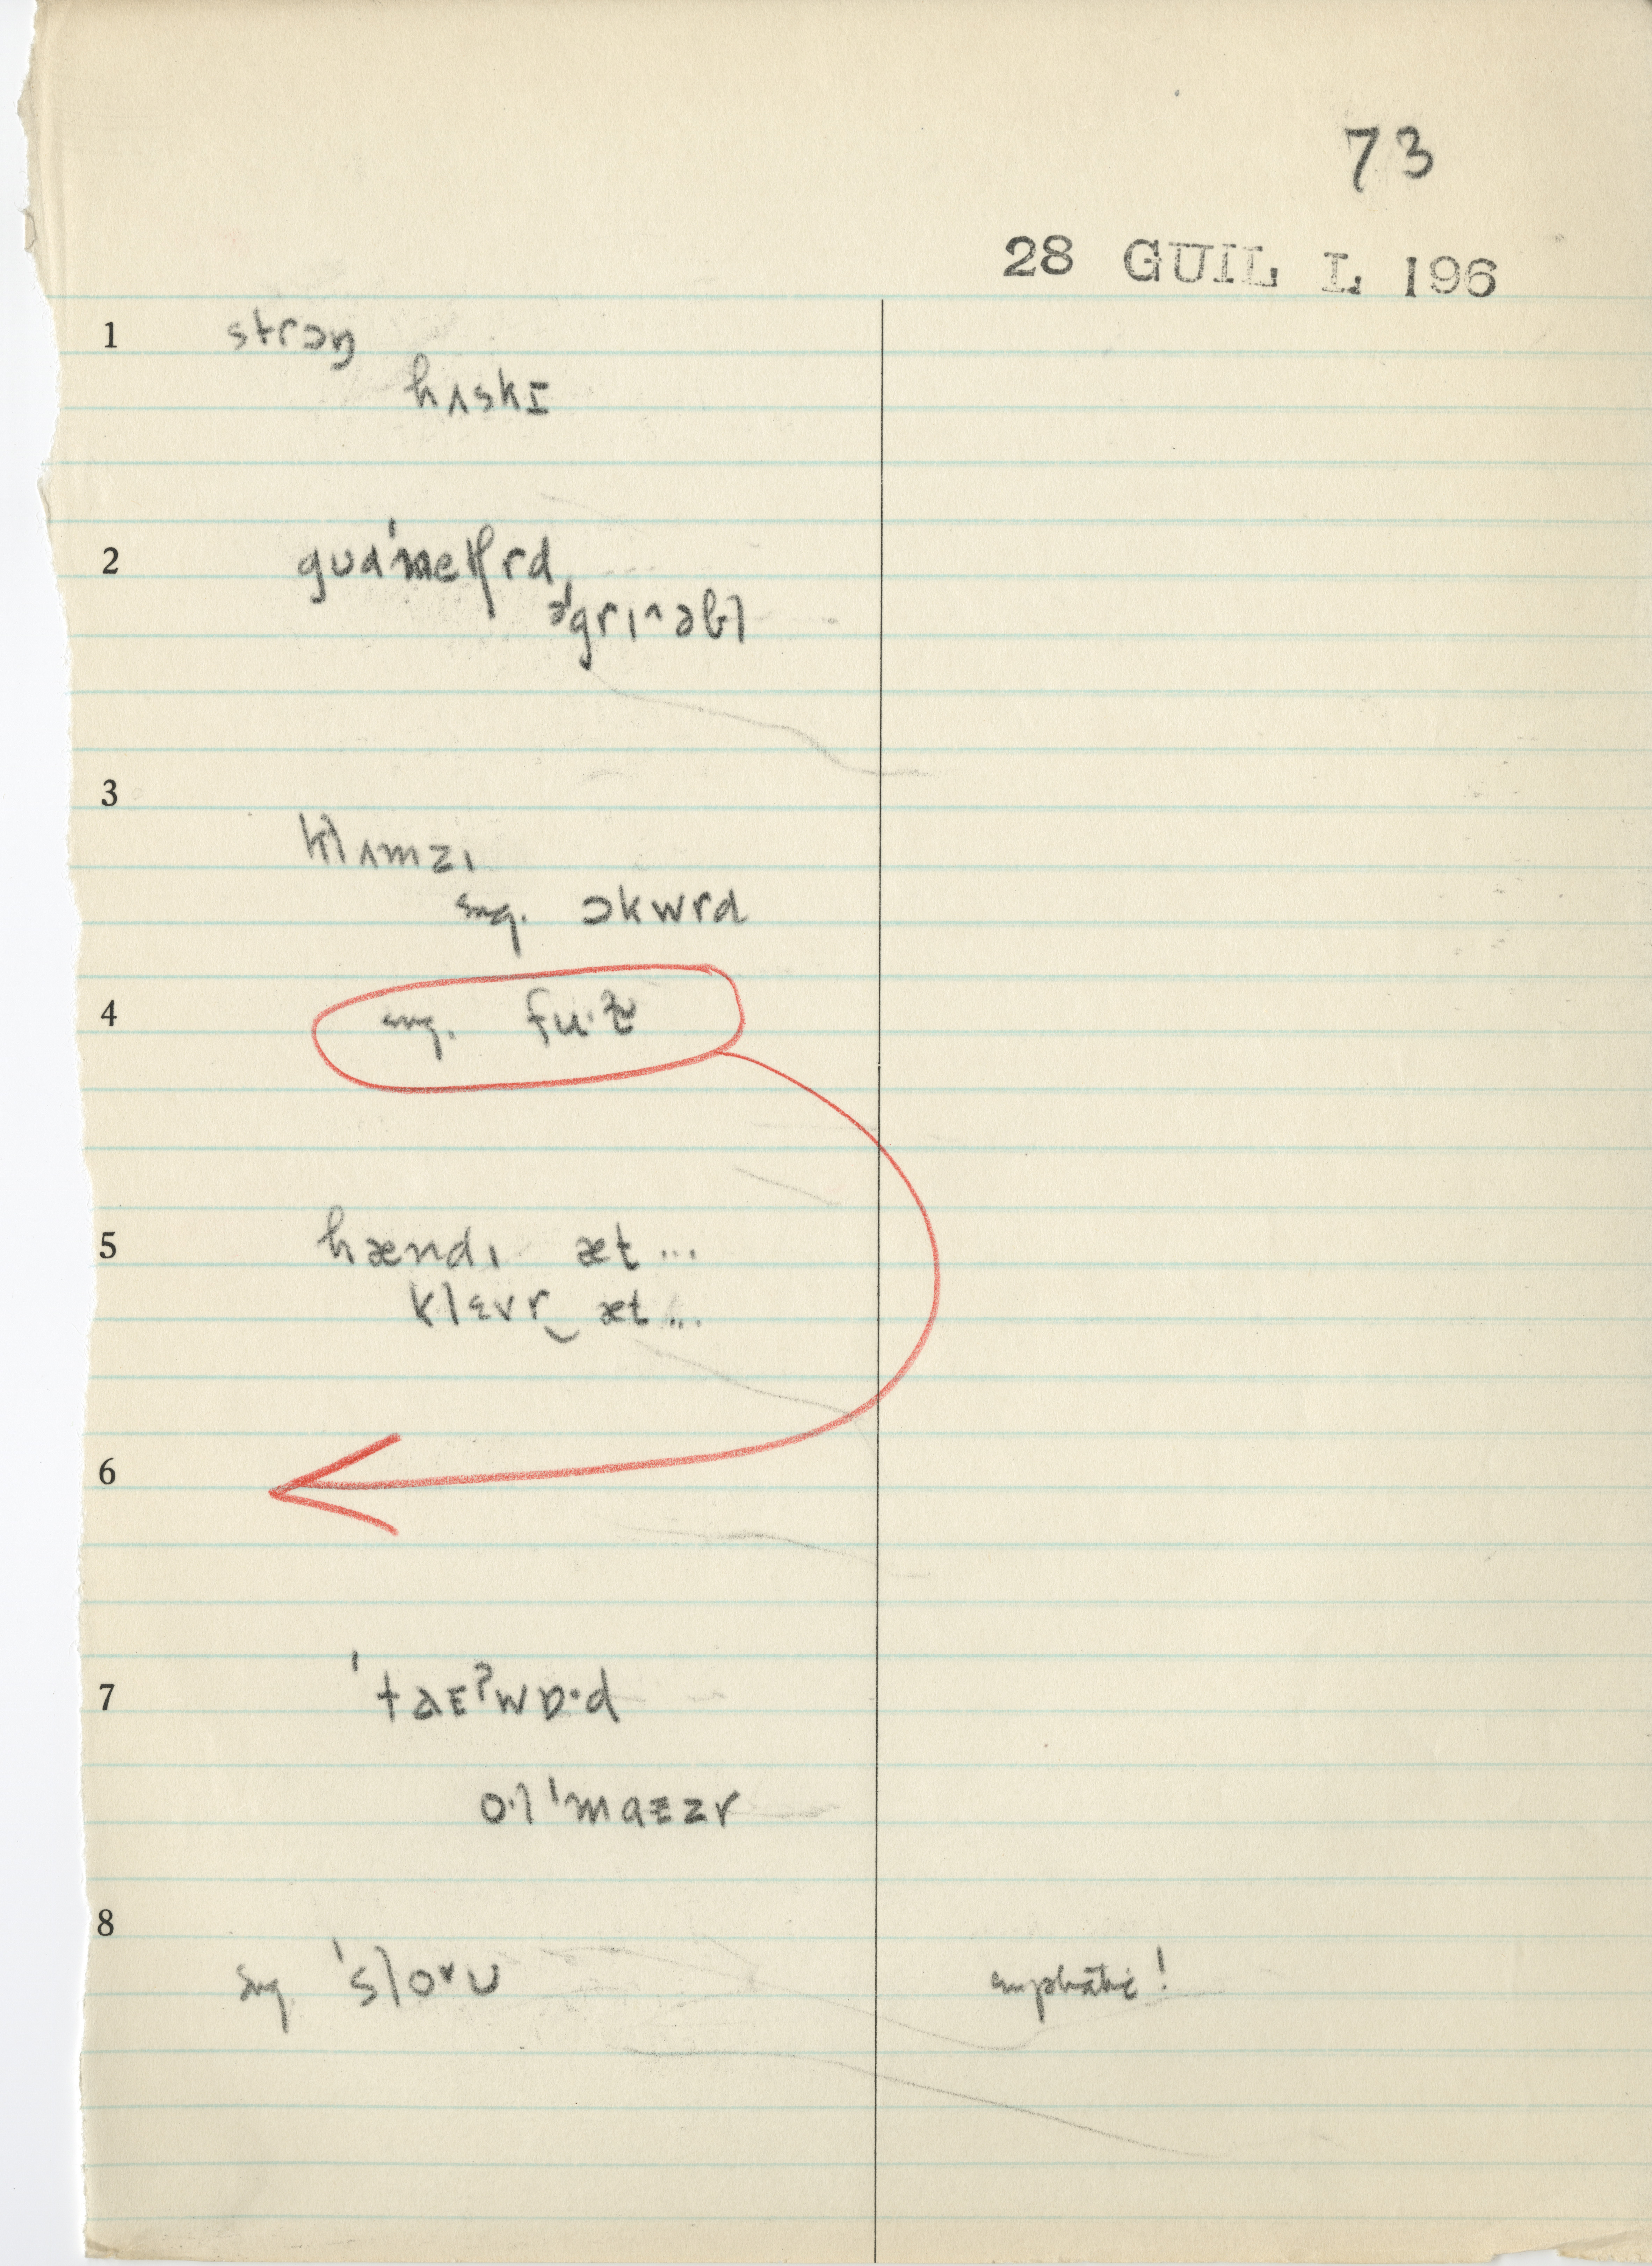 73
28 GUIL L 196
1 strɔŋ
hʌskɪ
2 gʊd'netʃrd,
ə'griˑəbl
3
klʌmzɪ
sug. ɔkwrd
4 sug. fu·lz
5 hændɪ æt ...
klɛvr‿æt ...
6
7 'taɛʔwɒ·d
o·l 'maɛzr
8
sug 'sloˑʊ emphatic!